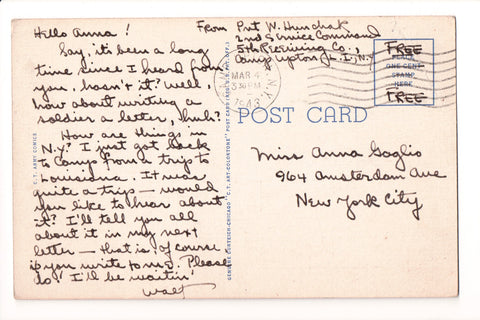 Hello Anna!
Say, it's been a long
time since I heard from
you, hasn't it? Well,
how about writing a
soldier a letter, huh?
How are things in
N.Y.? I just got back
to Camp from a trip to
Louisiana. It was
quite a trip — would
you like to hear about
it? I'll tell you all
about it in my next
letter — that is, of course
if you write to me. Please
do. I'll be waitin'
Walt
From Pvt W. Hunchak
2nd Service Command
5th Receiving Co.,
Camp Upton, L.I., N.Y.
MAR 4
1943
N.Y.
Free
PLACE
ONE CENT
STAMP
HERE
Free
POST CARD
Miss Anna Gaglio
964 Amsterdam Ave
New York City
C.T. ARMY COMICS
GENUINE CURTEICH-CHICAGO "C.T. ART-COLORTONE" POST CARD (REG. U.S. PAT. OFF.)